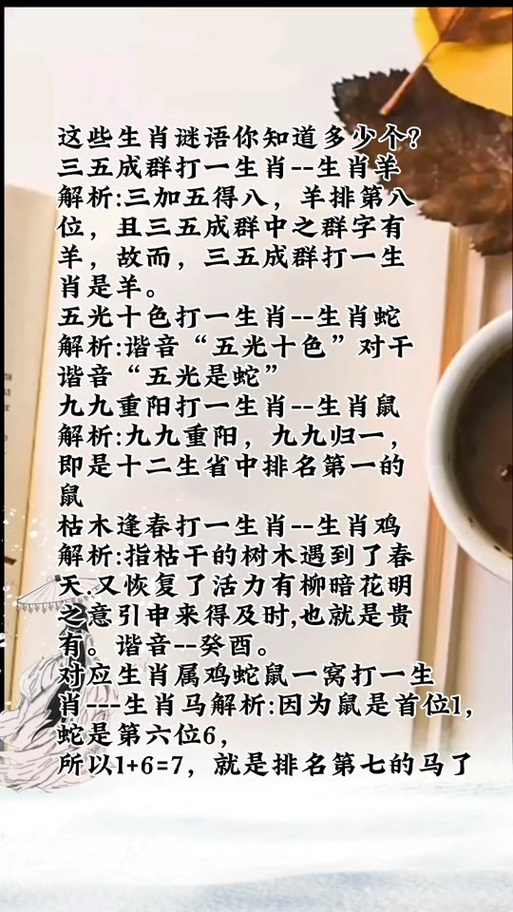 这些生肖谜语你知道多少个?
三五成群打一生肖--生肖羊
解析:三加五得八，羊排第八
位，且三五成群中之群字有
羊，故而，三五成群打一生
肖是羊。
五光十色打一生肖--生肖蛇
解析:谐音“五光十色”对干
谐音“五光是蛇”
九九重阳打一生肖--生肖鼠
解析:九九重阳，九九归一，
即是十二生省中排名第一的
鼠
枯木逢春打一生肖--生肖鸡
解析:指枯干的树木遇到了春
天.又恢复了活力有柳暗花明
之意引申来得及时,也就是贵
有。谐音--癸酉。
对应生肖属鸡蛇鼠一窝打一生
肖---生肖马解析:因为鼠是首位1,
蛇是第六位6,
所以1+6=7，就是排名第七的马了